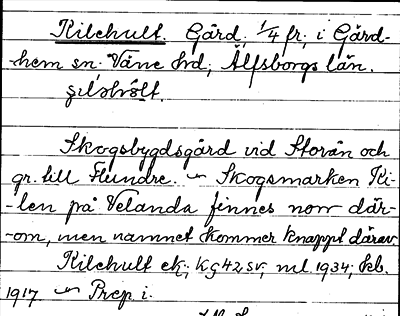 Kilehult. Gård, 1/4 fr, i Gärd-
hem sn. Väne hd, Älfsborgs län.

Skogsbygdsgård vid Storån och
gr. till Flundre. – Skogsmarken Ki-
-len på Velanda finnes norr där-
-om, men namnet kommer knappt därav.
Kilehult ek; kg 42 sv, ml 1934; kb.
1917 – Prep i.